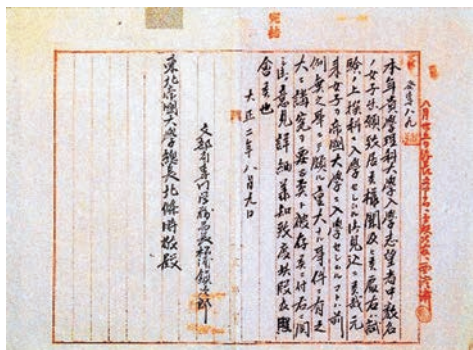 完結
本年貴學理科大學入學志望者中數名
ノ女子出願致居候樣聞及候處右ハ試
驗ノ上撰科ニ入學セシムル御見込ニ候哉元
來女子ヲ帝國大學ニ入學セシムルコトハ前
例無之事ニテ頗ル重大ナル事件ニ有之
大ニ講究ヲ要シ候ト被存候ニ付右ニ関
シ御意見詳細承知致度此段及照
會候也
大正二年八月九日
文部省專門學務局長松浦鎮次郎
東北帝國大學總長北條時敬殿